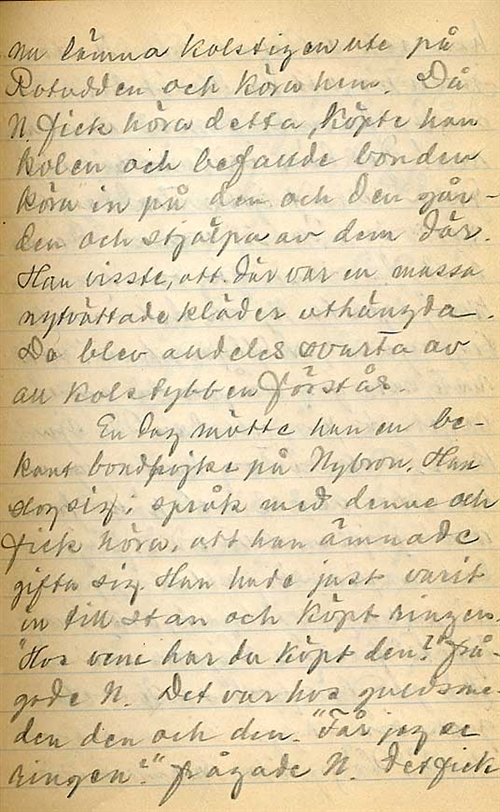 nu lämna kolstigen ute på
Rotudden och köra hem. Då
N. fick höra detta, köpte han
kolen och befallde bonden
köra in på den och den går-
den och stjälpa av dem där.
Han visste, att där var en massa
nytvättade kläder uthängda.
De blev alldeles svarta av
all kolstybben förstås.
En dag mötte han en be-
kant bondpojke på Nybron. Han
slog sig i språk med denne och
fick höra, att han ämnade
gifta sig. Han hade just varit
in till stan och köpt ringen.
"Hos vem har du köpt den?" frå-
gade N. Det var hos guldsme-
den den och den. "Får jag se
ringen?" frågade N. Det fick